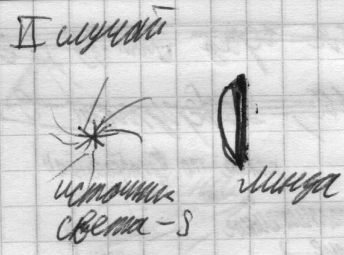 II случай
источник
света - S
линза